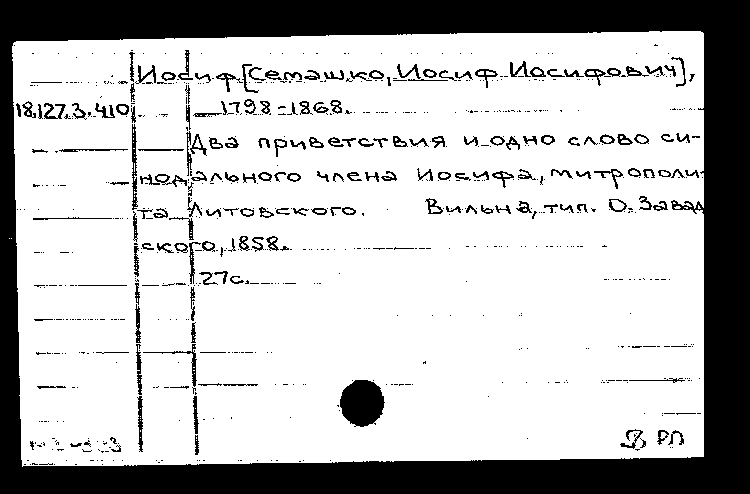 Иосиф [Семашко, Иосиф Иосифович],
18.127.3.410 1798-1868.
Два приветствия и одно слово си-
нодального члена Иосифа, митрополи-
та Литовского. Вильна, тип. О. Завад
ского, 1858.
27с.
РП